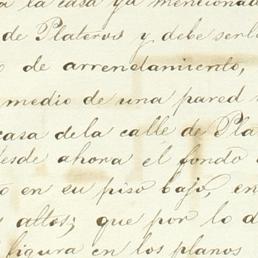 a la casa ya mencionada
de Plateros y debe ser
o de arrendamiento,
medio de una pared
casa dela calle de Pla
desde ahora él fondo
o en su piso bajo, en
s altos; que por lo d
figura en los planos